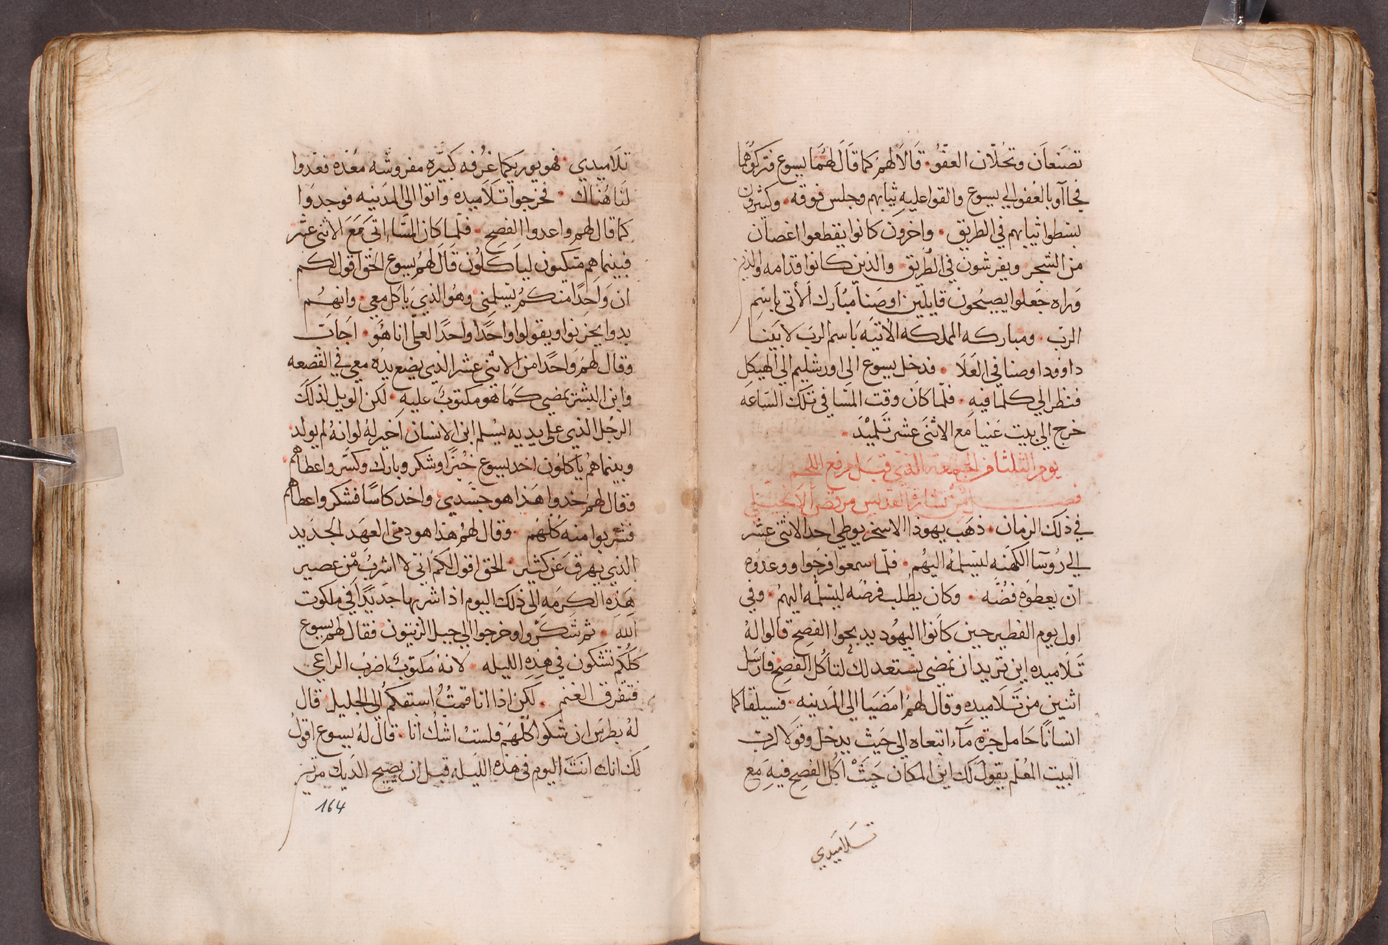 تصنعان وتحلان العفو. قالا لهم كما قال لهما يسوع فتركوهما
فجاآوبا لعفو الي يسوع والقوا عليه ثيابهم وجلس فوقه. وكثيرون
بسطوا ثيابهم في الطريق. واخرون كانوا يقطعوا اغصان
من الشجر ويفرشون في الطريق. والذين كانوا قدامه والدين
وراه جعلوا يصيحون قايلين اوصنا مبارك الاتي باسم
الرب. ومباركه المملكه الاتيه باسم الرب لابينا
داوود اوصنا في العلا. فدخل يسوع الي اورشليم الي الهيكل
فنظر الي كلما فيه. فلما كان وقت المسا في تلك الساعه
خرج الي بيت عنيا مع الاثني عشر تلميد.
يوم الثلثا من الجمعه الذي قبل مرفع اللحم
فصل من بشارة القديس مرقص الانجيلي
في ذلك الزمان. ذهب يهودا الاسخريوطي احد الاثني عشر
الي روسآ الكهنه ليسلمه اليهم. فلما سمعوا فرحوا ووعدوه
ان يعطوه فضه. وكان يطلب فرصه ليسلمه اليهم. وفي
اول يوم الفطير حين كانوا اليهود يدبحوا الفصح قالوا له
تلاميده اين تريد ان نمضي نستعد لك لتاكل الفصح فارسل
اثنين من تلاميده وقال لهم امضيا الي المدينه. فسيلقاكما
انسانا حامل جرة مآء اتبعاه الي حيث يدخل وقولا لرب
البيت المعلم يقول لك اين المكان حيث اكل الفصح فيه مع
تلاميدي
تلاميدي. فهو يوريكما غرفه كبيره مفروشه معده فعدوا
لنا هناك. فخرجوا تلاميده واتوا الي المدينه فوجدوا
كما قال لهم واعدوا الفصح. فلما كان المسا اتي مع الاثني عشر
فبينما هم متكيون لياكلون قال لهم يسوع الحق اقول لكم
ان واحدا منكم يسلمني وهو الذي ياكل معي. وانهم
بدوا يحزنوا ويقولوا واحدا واحدا لعلي انا هو. اجاب
وقال لهم واحدا من الاثني عشر الذي يضع يده معي في القصعه
وابن البشر يمضي كما هو مكتوب عليه. لكن الويل لذلك
الرجل الذي علي يديه يسلم ابن الانسان اخير له لوانه لم يولد.
وبينما هم ياكلون اخد يسوع خبزا وشكر وبارك وكسر واعطاهم
وقال لهم خدوا هذا هو جسدي. واخد كاسا فشكر واعطاهم
فشربوا منه كلهم. وقال لهم هذا هو دمي العهد الجديد
الذي يهرق عن كثير. الحق اقول لكم اني لا اشرب من عصير
هذه الكرمه الي ذلك اليوم اذا اشربها جديدا في ملكوت
الله. ثم شكروا وخرجوا الي جبل الزيتون فقال لهم يسوع
كلكم تشكون في هذه الليله. لانه مكتوب اضرب الراعي
فتتفرق الغنم. لكن اذا انا قمت اسبقكم الي الجليل. قال
له بطرس ان شكوا كلهم فلست اشك انا. قال له يسوع اقول
لك انك انت اليوم في هذه الليله قبل ان يصيح الديك مرتين
164